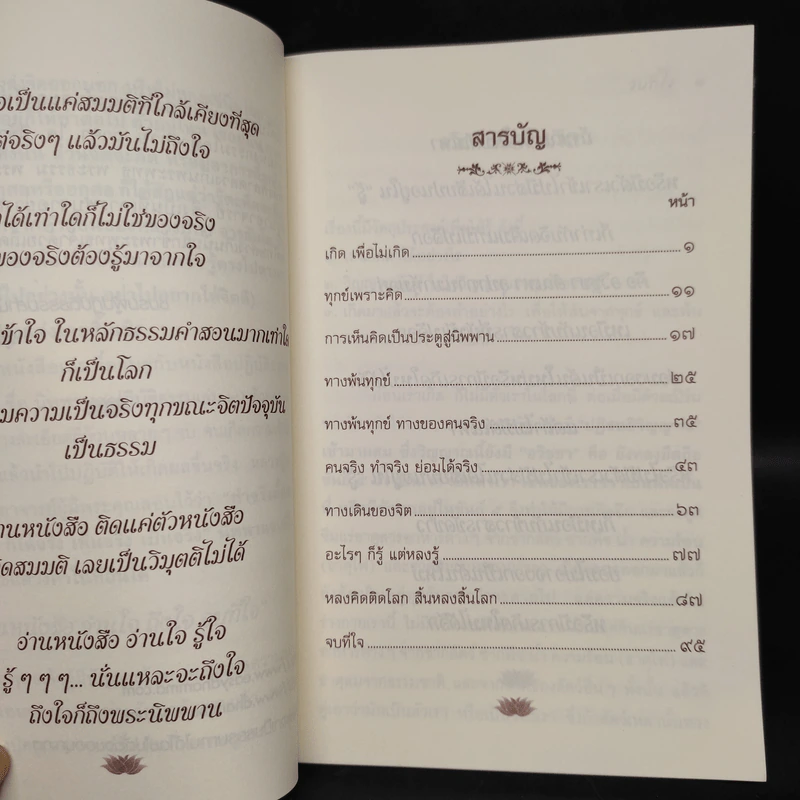 เป็นแค่สมมติที่ใกล้เคียงที่สุด
จริงๆ แล้วมันไม่ถึงใจ
ได้เท่าใดก็ไม่ใช่ของจริง
ของจริงต้องรู้มาจากใจ
ข้าใจ ในหลักธรรมคำสอนมากเท่าใด
ก็เป็นโลก
ความเป็นจริงทุกขณะจิตปัจจุบัน
เป็นธรรม
านหนังสือ ติดแค่ตัวหนังสือ
ดสมมติ เลยเป็นวิมุตติไม่ได้
อ่านหนังสือ อ่านใจ รู้ใจ
รู้ ๆ ๆ ๆ... นั่นแหละจะถึงใจ
ถึงใจก็ถึงพระนิพพาน
สารบัญ
หน้า
เกิด เพื่อไม่เกิด ๑
ทุกข์เพราะคิด ๑๑
การเห็นคิดเป็นประตูสู่นิพพาน ๑๗
ทางพ้นทุกข์ ๒๕
ทางพ้นทุกข์ ทางของคนจริง ๓๕
คนจริง ทำจริง ย่อมได้จริง ๔๓
ทางเดินของจิต ๖๓
อะไรๆ ก็รู้ แต่หลงรู้ ๗๗
หลงคิดติดโลก สิ้นหลงสิ้นโลก ๘๗
จบที่ใจ ๙๕